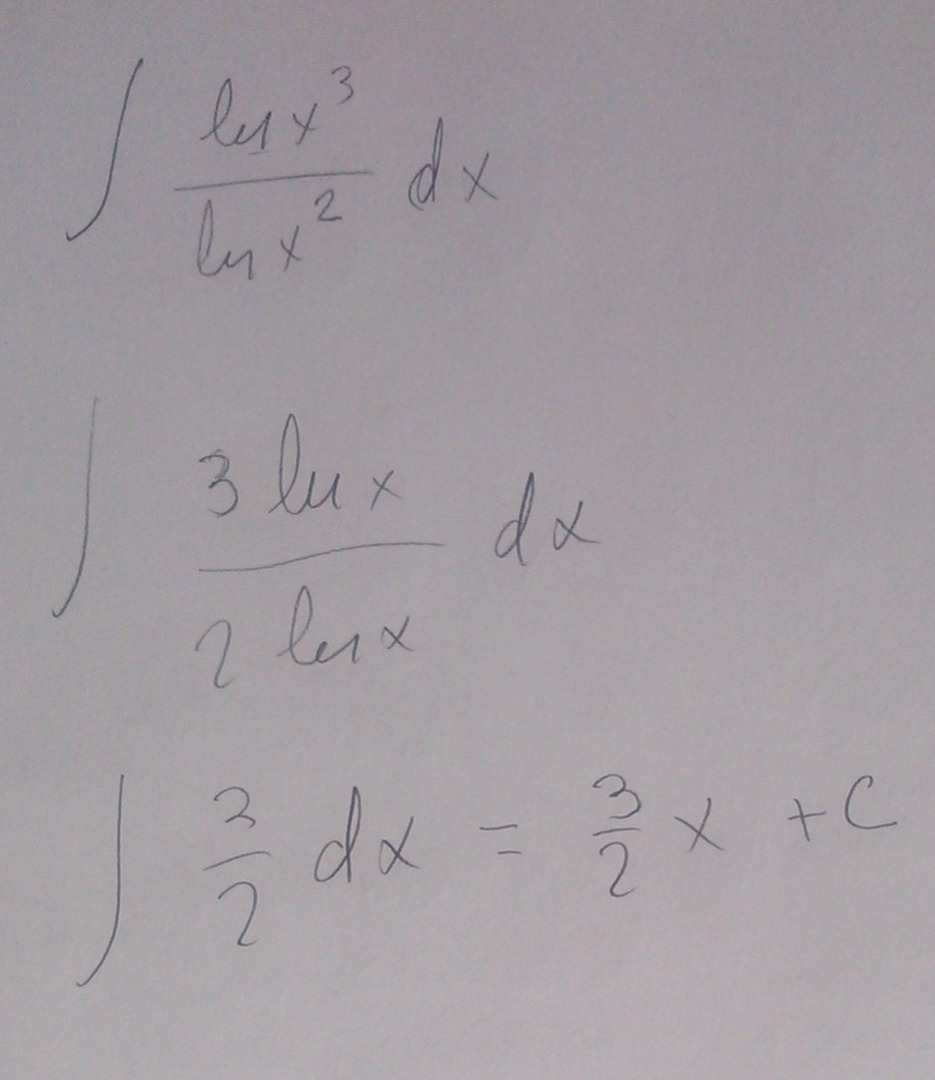 ∫ ln x³ / ln x² dx
∫ 3 ln x / 2 ln x dx
∫ 3/2 dx = 3/2 x + C